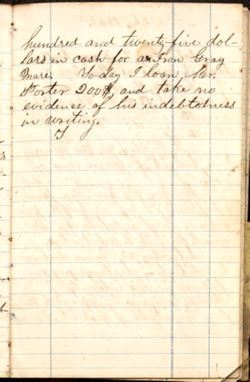 hundred and twenty five dol-
lars in cash for an Iron Gray
Mare. To day I loan, Mr.
Porter 200$, and take no
evidence of his indebtedness
in writing.